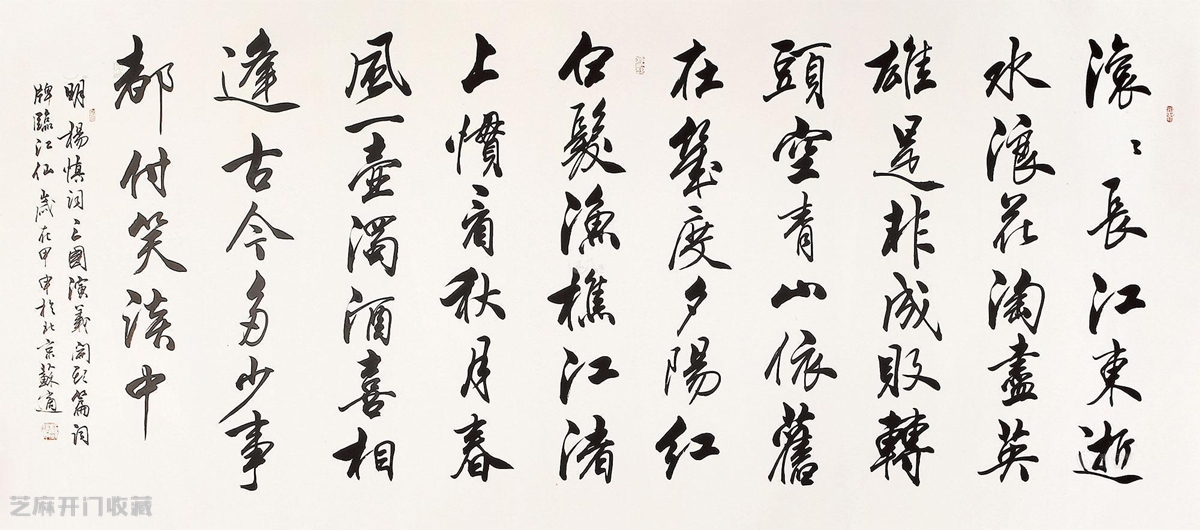 滾〻長江東逝
水浪花淘盡英
雄是非成敗轉
頭空青山依舊
在幾度夕陽紅
白髮漁樵江渚
上慣看秋月春
風一壺濁酒喜相
逢古今多少事
都付笑談中
明楊慎詞三國演義開頭篇詞
牌臨江仙歲在甲申於北京蘇適
芝麻开门收藏